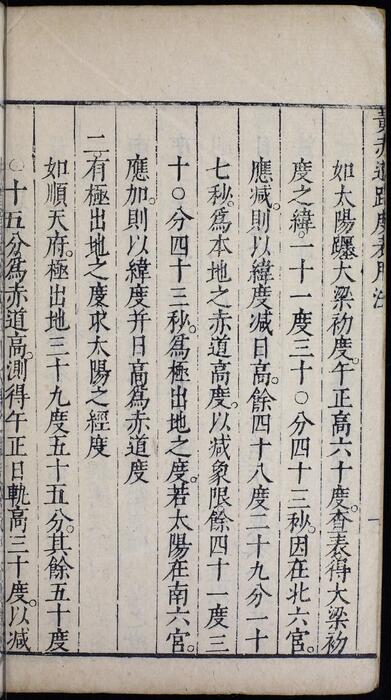 黃赤道距度表用法
如太陽躔大梁初度。午正高六十度。查表得大梁初
度之緯。一十一度三十〇分四十三秒。因在北六宮。
應減。則以緯度減日高。餘四十八度二十九分一十
七秒。為本地之赤道高度。以減象限。餘四十一度三
十〇分四十三秒。為極出地之度。若太陽在南六宮。
應加。則以緯度并日高為赤道度
二有極出地之度求太陽之經度
如順天府。極出地三十九度五十五分。其餘五十度
〇十五分為赤道高。測得午正日軌高三十度。以減